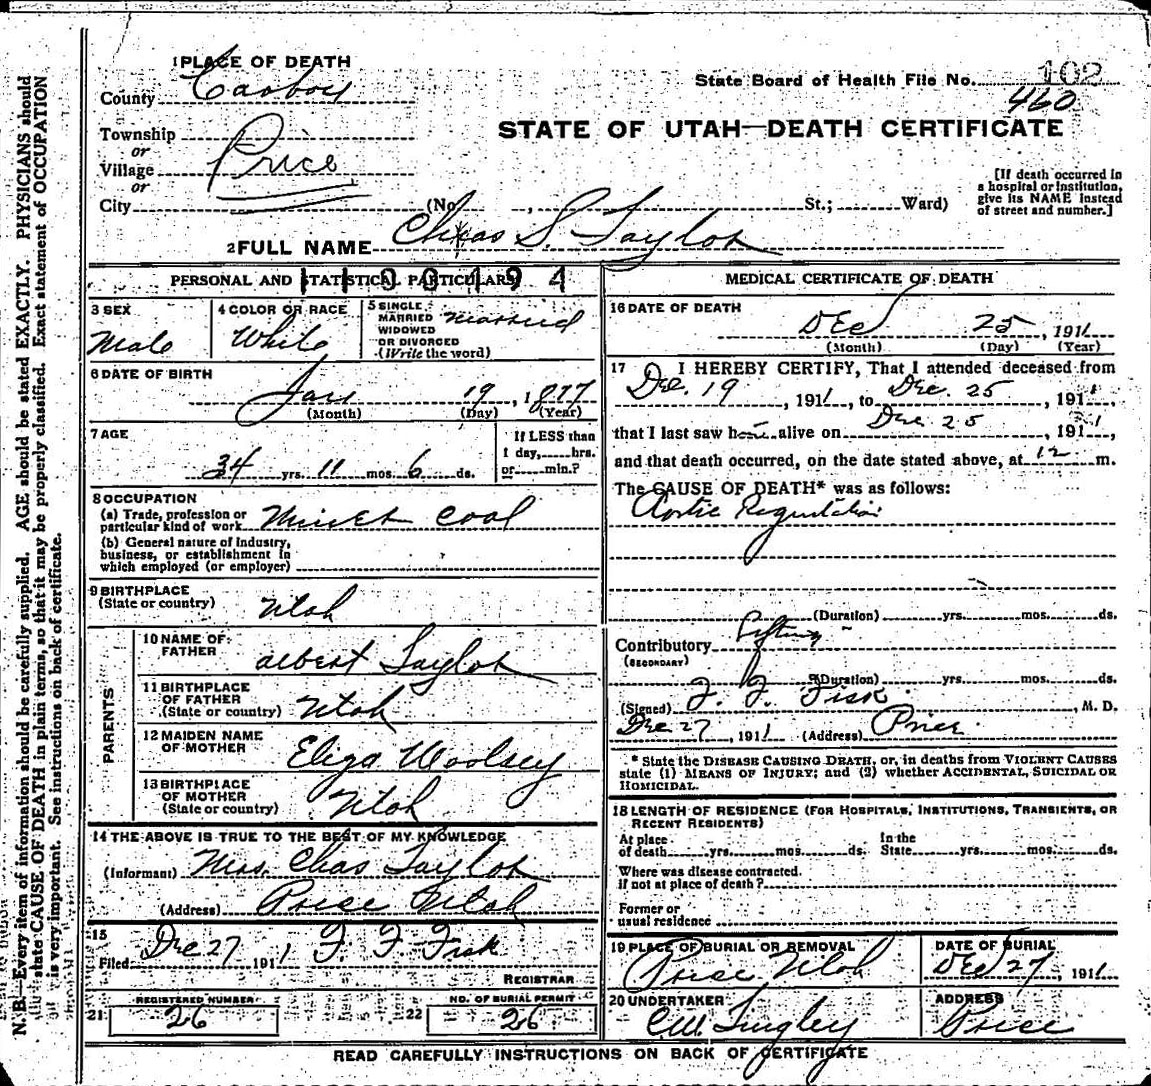 1 PLACE OF DEATH
County Carbon
Township
or
Village Price
or
City (No. , St.; Ward)
State Board of Health File No. 102
460
STATE OF UTAH—DEATH CERTIFICATE
[If death occurred in
a hospital or institution,
give its NAME instead
of street and number.]
2 FULL NAME Chas S. Taylor
PERSONAL AND STATISTICAL PARTICULARS
3 SEX
Male
4 COLOR OR RACE
White
5 SINGLE
MARRIED
WIDOWED
OR DIVORCED
(Write the word)
Married
6 DATE OF BIRTH
Jan 19, 1877
(Month) (Day) (Year)
7 AGE
34 yrs. 11 mos. 6 ds.
If LESS than
1 day, hrs.
or min.?
8 OCCUPATION
(a) Trade, profession or
particular kind of work Miner Coal
(b) General nature of industry,
business, or establishment in
which employed (or employer)
9 BIRTHPLACE
(State or country) Utah
PARENTS
10 NAME OF
FATHER Albert Taylor
11 BIRTHPLACE
OF FATHER
(State or country) Utah
12 MAIDEN NAME
OF MOTHER Eliza Woolsey
13 BIRTHPLACE
OF MOTHER
(State or country) Utah
14 THE ABOVE IS TRUE TO THE BEST OF MY KNOWLEDGE
(Informant) Mrs. Chas Taylor
(Address) Price Utah
15
Filed Dec 27 1911 F. F. Fisk
REGISTRAR
REGISTERED NUMBER
21 26
NO. OF BURIAL PERMIT
22 26
MEDICAL CERTIFICATE OF DEATH
16 DATE OF DEATH
Dec 25, 1911
(Month) (Day) (Year)
17 I HEREBY CERTIFY, That I attended deceased from
Dec. 19, 1911, to Dec. 25, 1911,
that I last saw him alive on Dec 25, 1911,
and that death occurred, on the date stated above, at 12 m.
The CAUSE OF DEATH* was as follows:
Aortic Regurtation
(Duration) yrs. mos. ds.
Contributory
(SECONDARY)
(Duration) yrs. mos. ds.
(Signed) F. F. Fisk, M. D.
Dec 27, 1911 (Address) Price
* State the DISEASE CAUSING DEATH, or, in deaths from VIOLENT CAUSES
state (1) MEANS OF INJURY; and (2) whether ACCIDENTAL, SUICIDAL OR
HOMICIDAL.
18 LENGTH OF RESIDENCE (FOR HOSPITALS, INSTITUTIONS, TRANSIENTS, OR
RECENT RESIDENTS)
At place
of death yrs. mos. ds.
In the
State yrs. mos. ds.
Where was disease contracted.
if not at place of death?
Former or
usual residence
19 PLACE OF BURIAL OR REMOVAL
Price Utah
DATE OF BURIAL
Dec 27, 1911
20 UNDERTAKER
C.W. Tingley
ADDRESS
Price
READ CAREFULLY INSTRUCTIONS ON BACK OF CERTIFICATE
N. B.—Every item of information should be carefully supplied. AGE should be stated EXACTLY. PHYSICIANS should
state CAUSE OF DEATH in plain terms, so that it may be properly classified. Exact statement of OCCUPATION
is very important. See instructions on back of certificate.